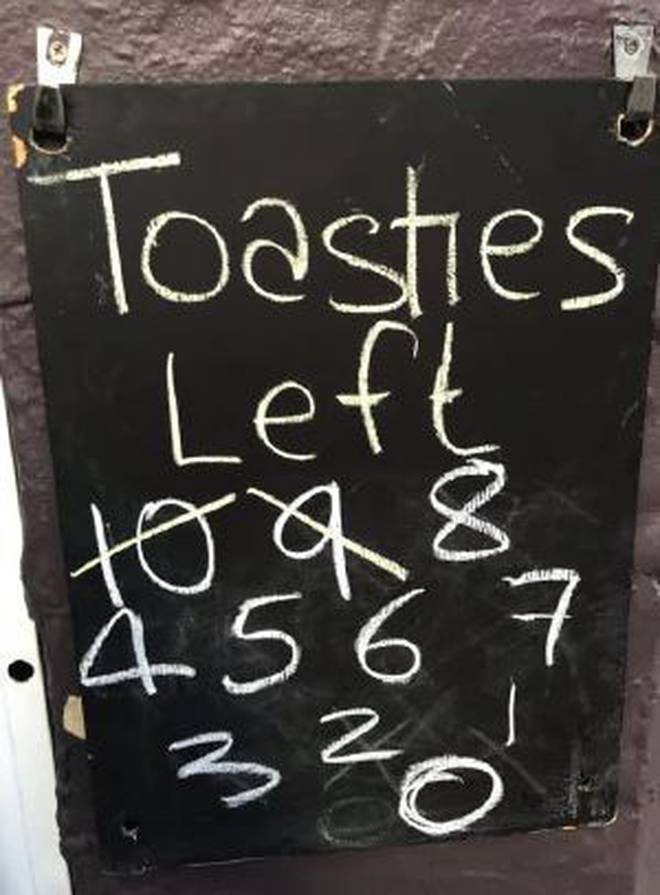 Toasties
Left
10 9 8
4 5 6 7
3 2 1
0